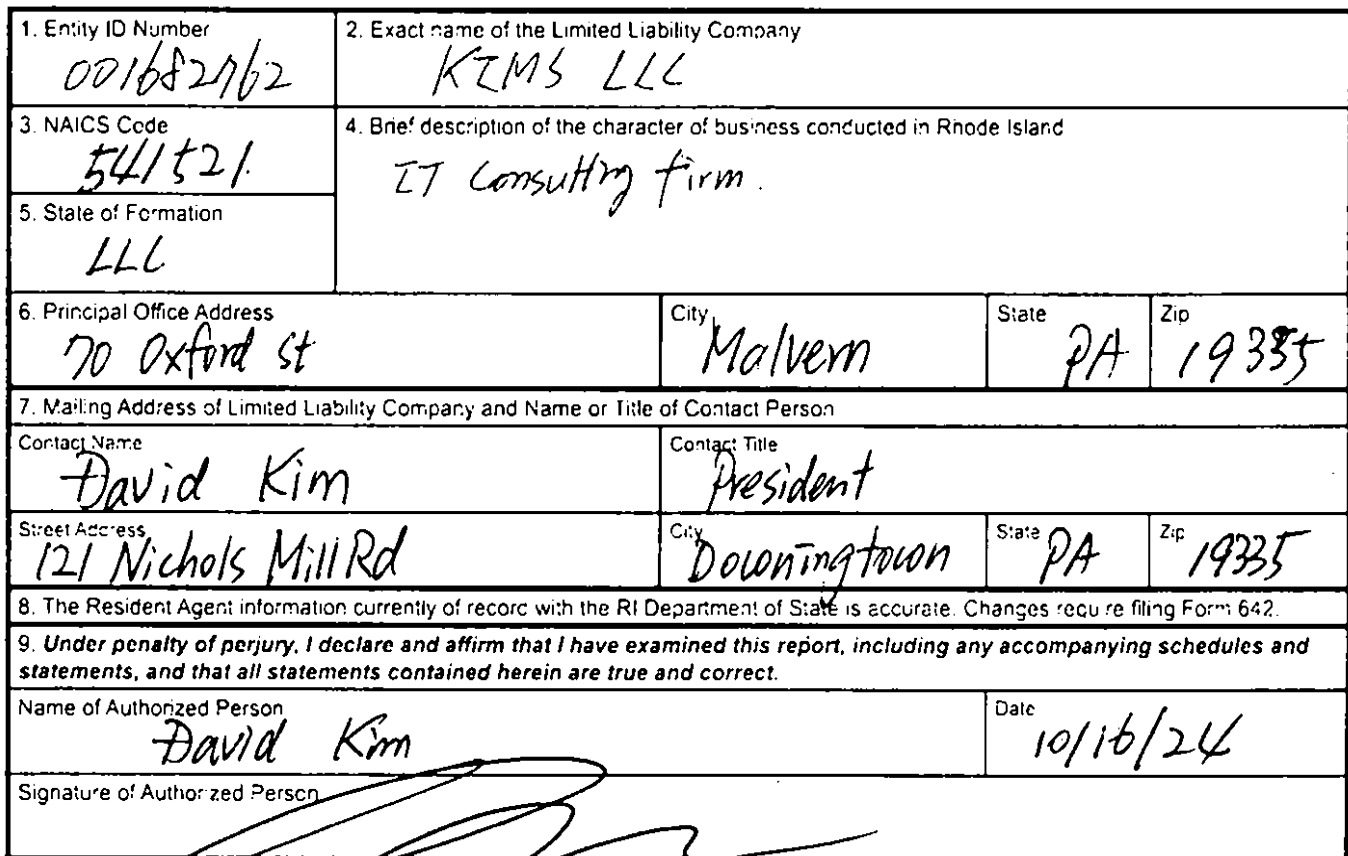 1. Entity ID Number
001682762
2. Exact name of the Limited Liability Company
KIMS LLC
3. NAICS Code
541521.
4. Brief description of the character of business conducted in Rhode Island
IT Consulting firm.
5. State of Formation
LLC
6. Principal Office Address
70 Oxford st
City
Malvern
State
PA
Zip
19335
7. Mailing Address of Limited Liability Company and Name or Title of Contact Person
Contact Name
David Kim
Contact Title
President
Street Address
121 Nichols Mill Rd
City
Downingtown
State
PA
Zip
19335
8. The Resident Agent information currently of record with the RI Department of State is accurate. Changes require filing Form 642.
9. Under penalty of perjury, I declare and affirm that I have examined this report, including any accompanying schedules and
statements, and that all statements contained herein are true and correct.
Name of Authorized Person
David Kim
Date
10/16/24
Signature of Authorized Person